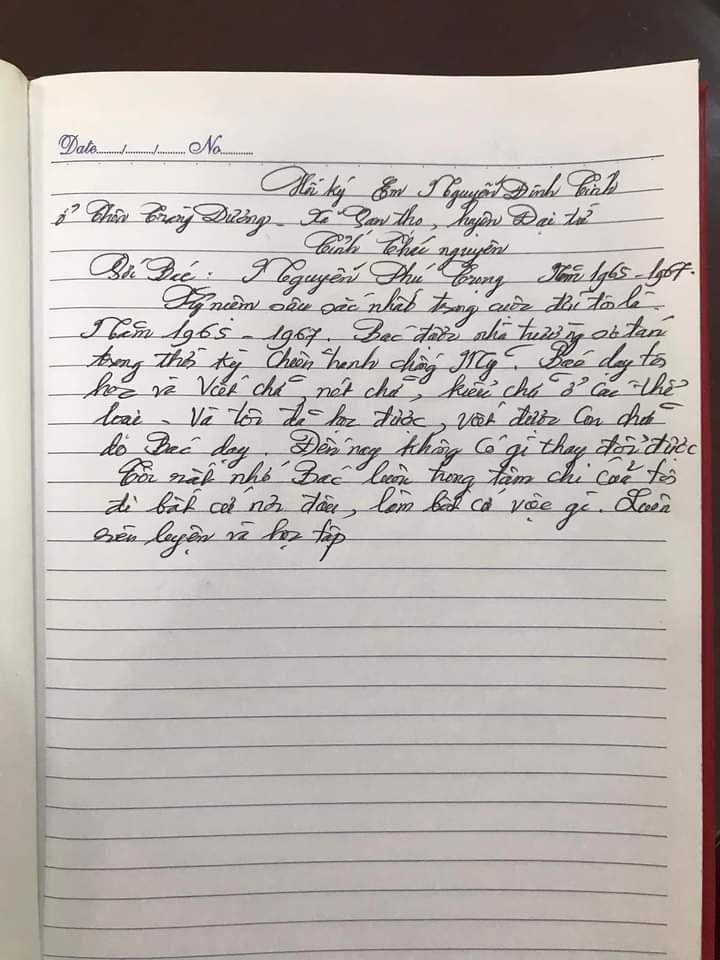 Date......../......../......... No..........
Hồi ký Em Nguyễn Đình Tính
ở Thôn Tràng Dương - Xã Vạn thọ, huyện Đại từ
Tỉnh Thái nguyên
Gửi Bác: Nguyễn Phú Trọng Năm 1965-1967.
Kỷ niệm sâu sắc nhất trong cuộc đời tôi là
Năm 1965 - 1967. Bác được nhà trường sơ tán
trong thời kỳ chiến tranh chống Mỹ. Bác dạy tôi
học và viết chữ, nét chữ, kiểu chữ ở các thể
loại - Và tôi đã học được, viết được con chữ
do Bác dạy. Đến nay không có gì thay đổi được
Tôi rất nhớ Bác luôn trong tâm chí của tôi
đi bất cứ nơi đâu, làm bất cứ việc gì. Luôn
rèn luyện và học tập